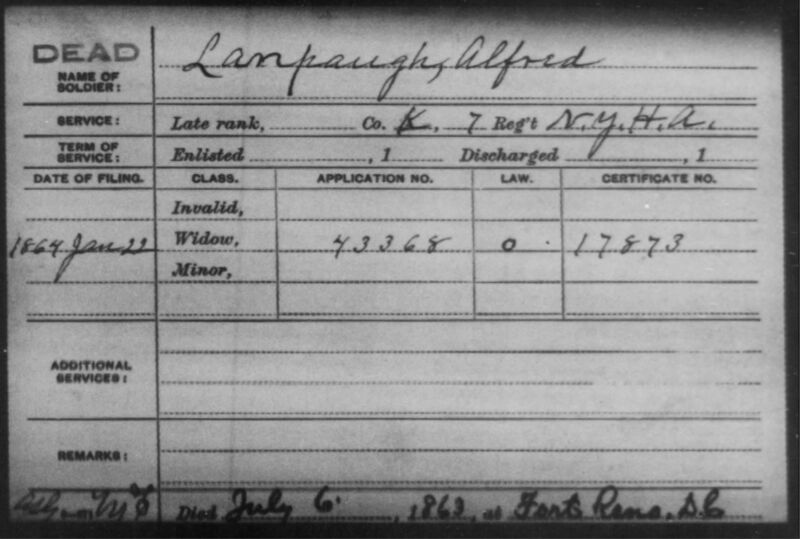 DEAD
NAME OF SOLDIER: Lanpaugh, Alfred
SERVICE: Late rank, Co. K, 7 Reg't N.Y.H.A.
TERM OF SERVICE: Enlisted , 1 Discharged , 1
DATE OF FILING. CLASS. APPLICATION NO. LAW. CERTIFICATE NO.
Invalid,
1864 Jan 22 Widow, 43368 o 17873
Minor,
ADDITIONAL SERVICES:
REMARKS:
Died July 6, 1863, at Fort Reno, D.C